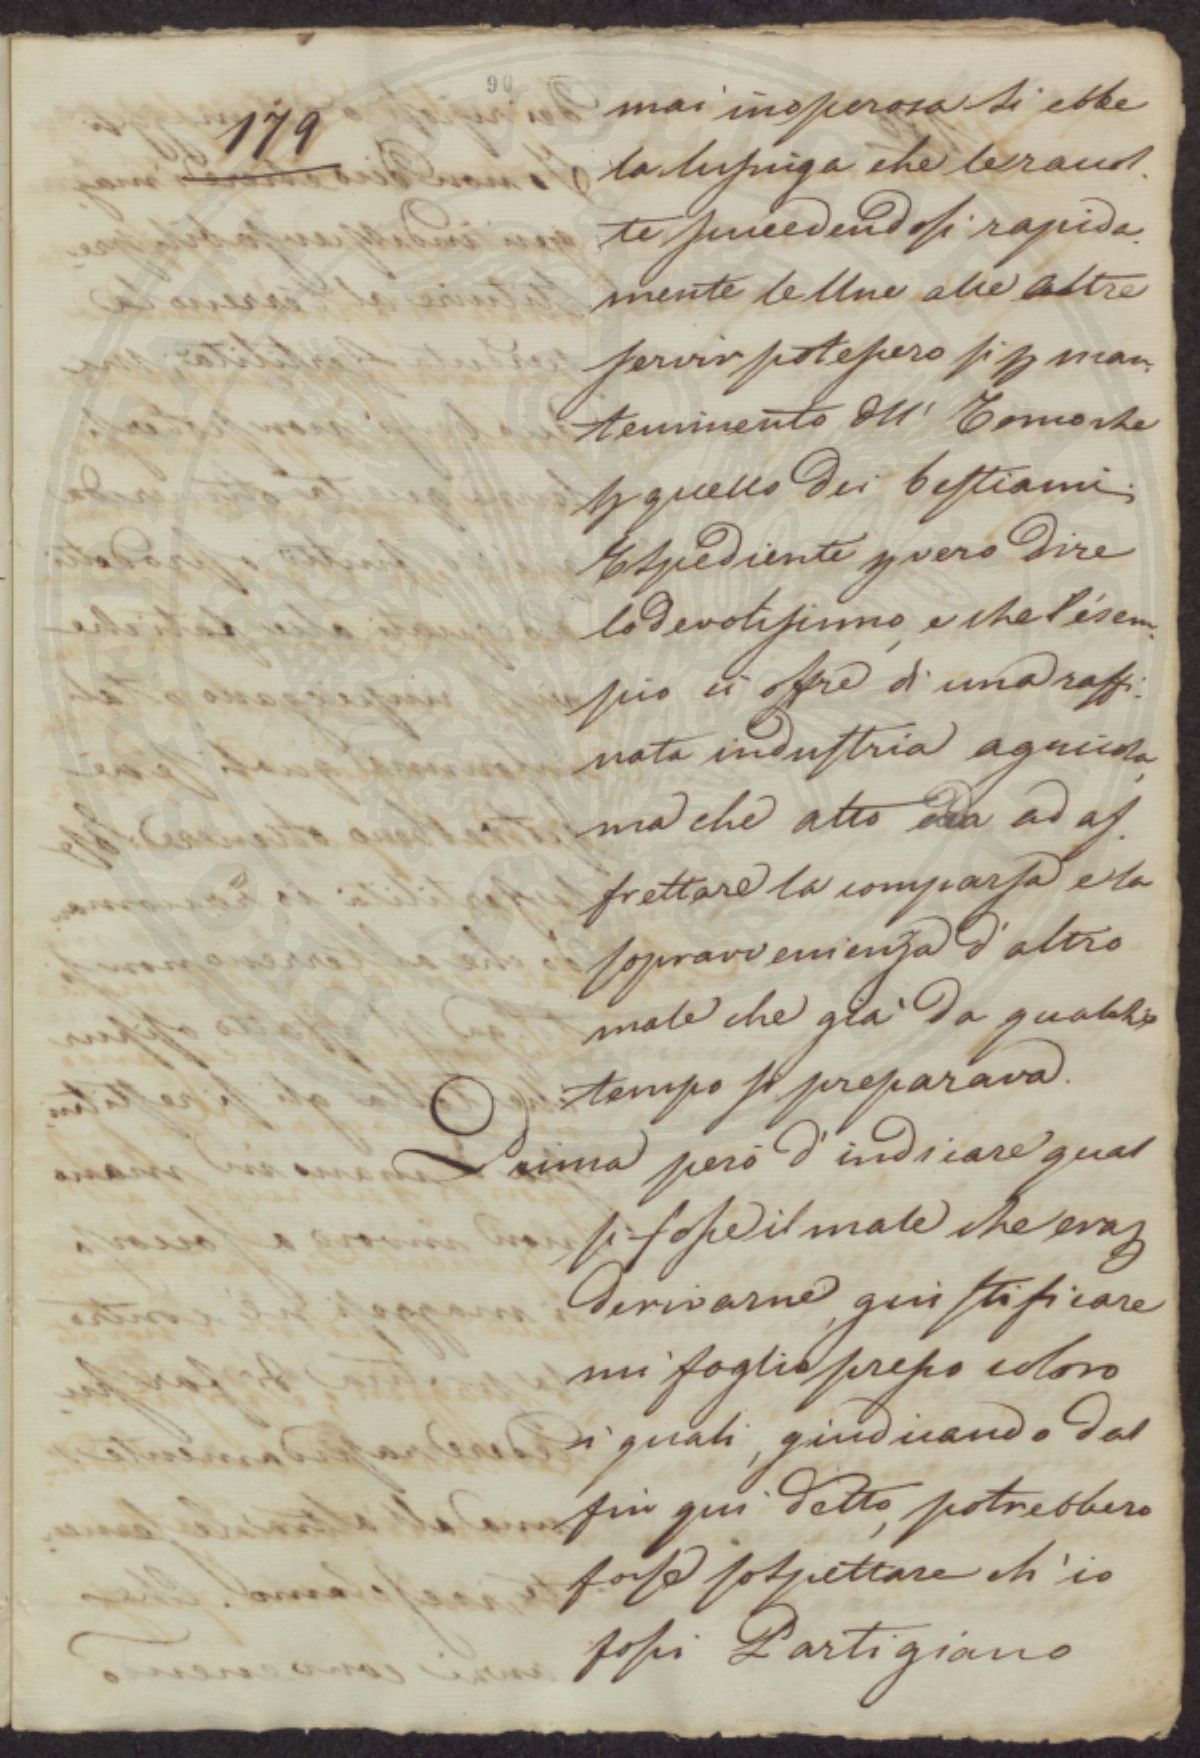 90
179
mai inoperosa si ebbe
la lusinga che le racol-
te succedendosi rapida-
mente le Une alle altre
servir potessero si p man-
tenimento dll' Uomo che
p quello dei bestiami;
Espediente p vero dire
lodevolissimo, e che l'esem-
pio ci offre di una raffi-
nata industria agricola,
ma che atto era ad af-
frettare la comparsa e la
sopravvenienza d'altro
male che già da qualche
tempo si preparava.
Prima però d'indicare qual
si fosse il male che era p
derivarne, giustificare
mi voglio presso coloro
i quali, giudicando dal
fin qui detto, potrebbero
forse sospettare ch'io
fossi Partigiano